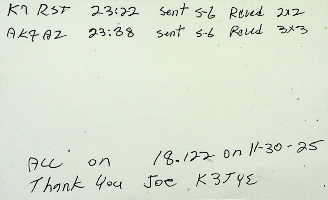 K7 RST 23:22 sent 5-6 Rcved 2x2
AK7AZ 23:38 sent 5-6 Rcved 3x3
All on 18.122 on 11-30-25
Thank You Joe K3TYE